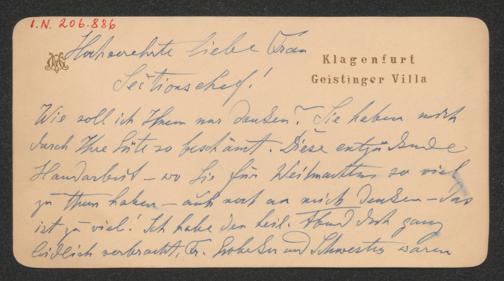 I.N. 206.886
Hochverehrte liebe Frau
Sectionschef!
Klagenfurt
Geistinger Villa
Wie soll ich Ihnen nur danken? Sie haben mich
durch Ihre Güte so beschämt. Diese entzückende
Handarbeit – wo Sie für Weihnachten so viel
zu thun haben – auch noch an mich denken – das
ist zu viel! Ich habe den heil. Abend doch ganz
leidlich verbracht, Fr. und Schwester waren